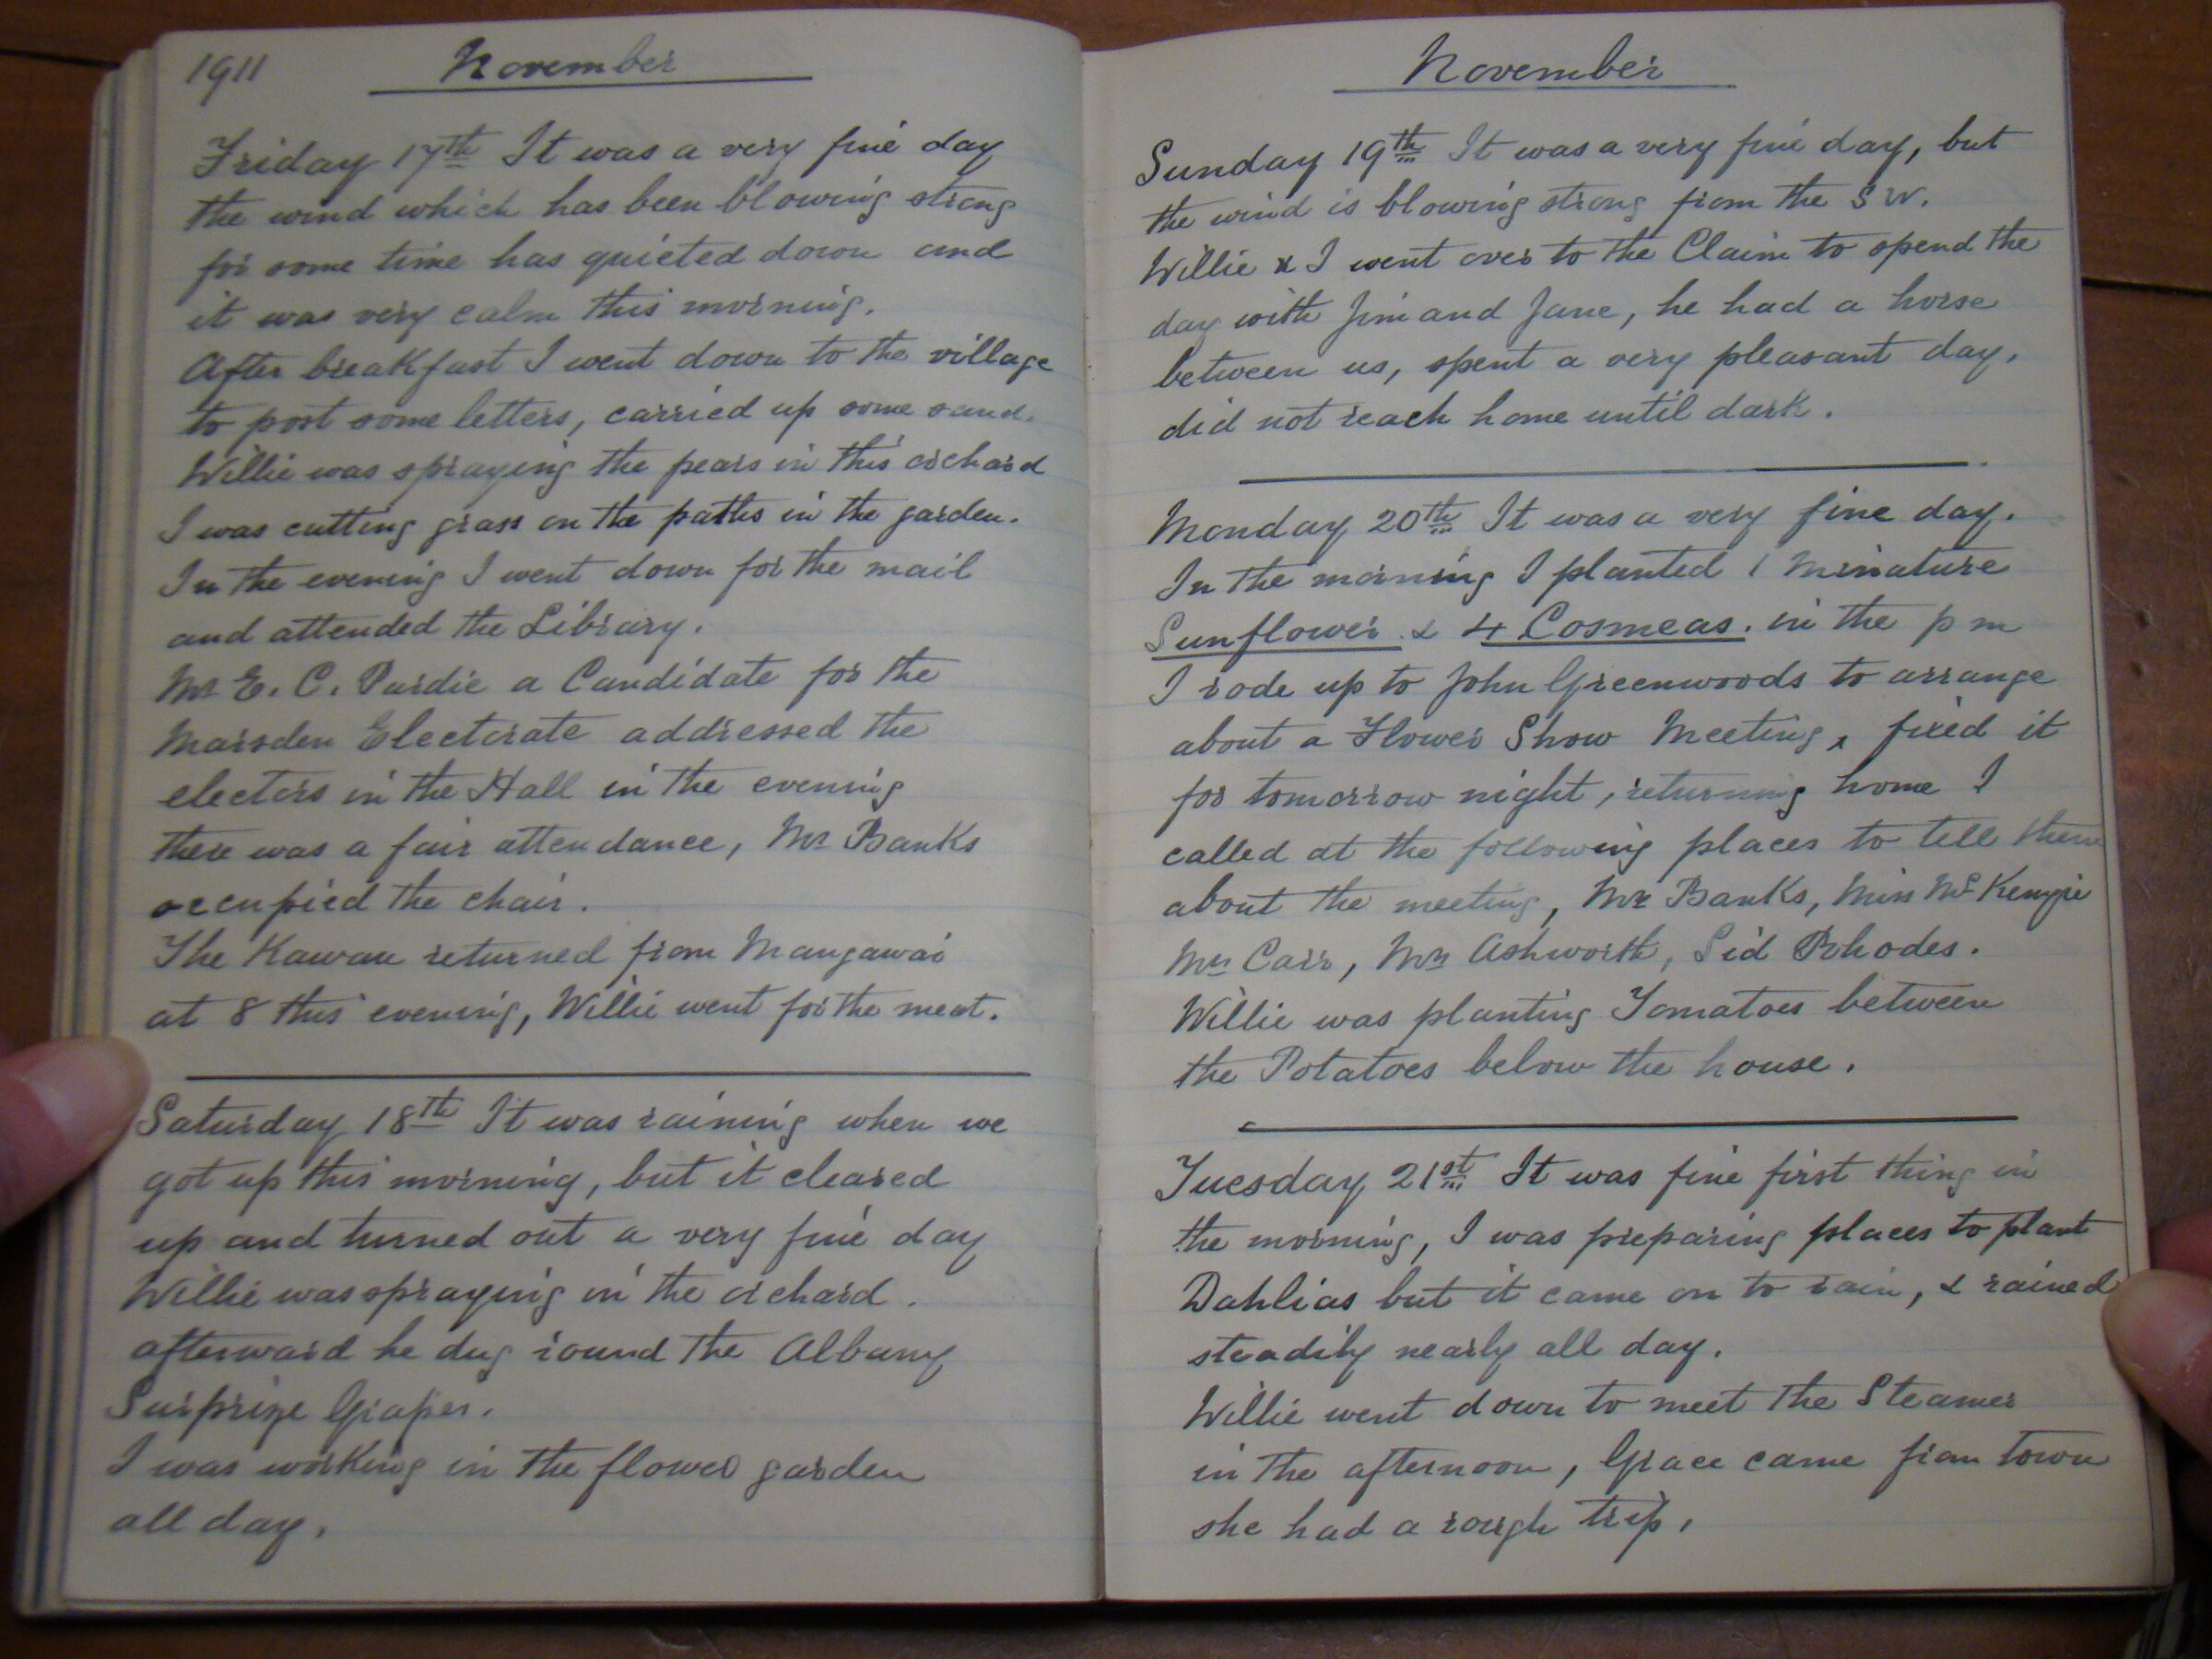 1911 November
Friday 17th It was a very fine day
the wind which has been blowing strong
for some time has quieted down and
it was very calm this morning.
After breakfast I went down to the village
to post some letters, carried up some sand.
Willie was spraying the pears in this orchard
I was cutting grass on the paths in the garden.
In the evening I went down for the mail
and attended the Library.
Mr E. C. Purdie a Candidate for the
Marsden Electorate addressed the
electors in the Hall in the evening
there was a fair attendance, Mr Banks
occupied the chair.
The Kawau returned from Mangawai
at 8 this evening, Willie went for the meat.
Saturday 18th It was raining when we
got up this morning, but it cleared
up and turned out a very fine day
Willie was spraying in the orchard.
afterward he dug round the Albany
Surprize Grapes.
I was working in the flower garden
all day.
November
Sunday 19th It was a very fine day, but
the wind is blowing strong from the S W.
Willie & I went over to the Claim to spend the
day with Jim and Jane, he had a horse
between us, spent a very pleasant day,
did not reach home until dark.
Monday 20th It was a very fine day.
In the morning I planted 1 Minature
Sunflower & 4 Cosmeas. in the p m
I rode up to John Greenwoods to arrange
about a Flower Show Meeting, fixed it
for tomorrow night, returning home I
called at the following places to tell them
about the meeting, Mr Banks, Miss McKenzie
Mrs Carr, Mrs Ashworth, Sid Rhodes.
Willie was planting Tomatoes between
the Potatoes below the house.
Tuesday 21st It was fine first thing in
the morning, I was preparing places to plant
Dahlias but it came on to rain, & rained
steadily nearly all day.
Willie went down to meet the Steamer
in the afternoon, Grace came from town
she had a rough trip.